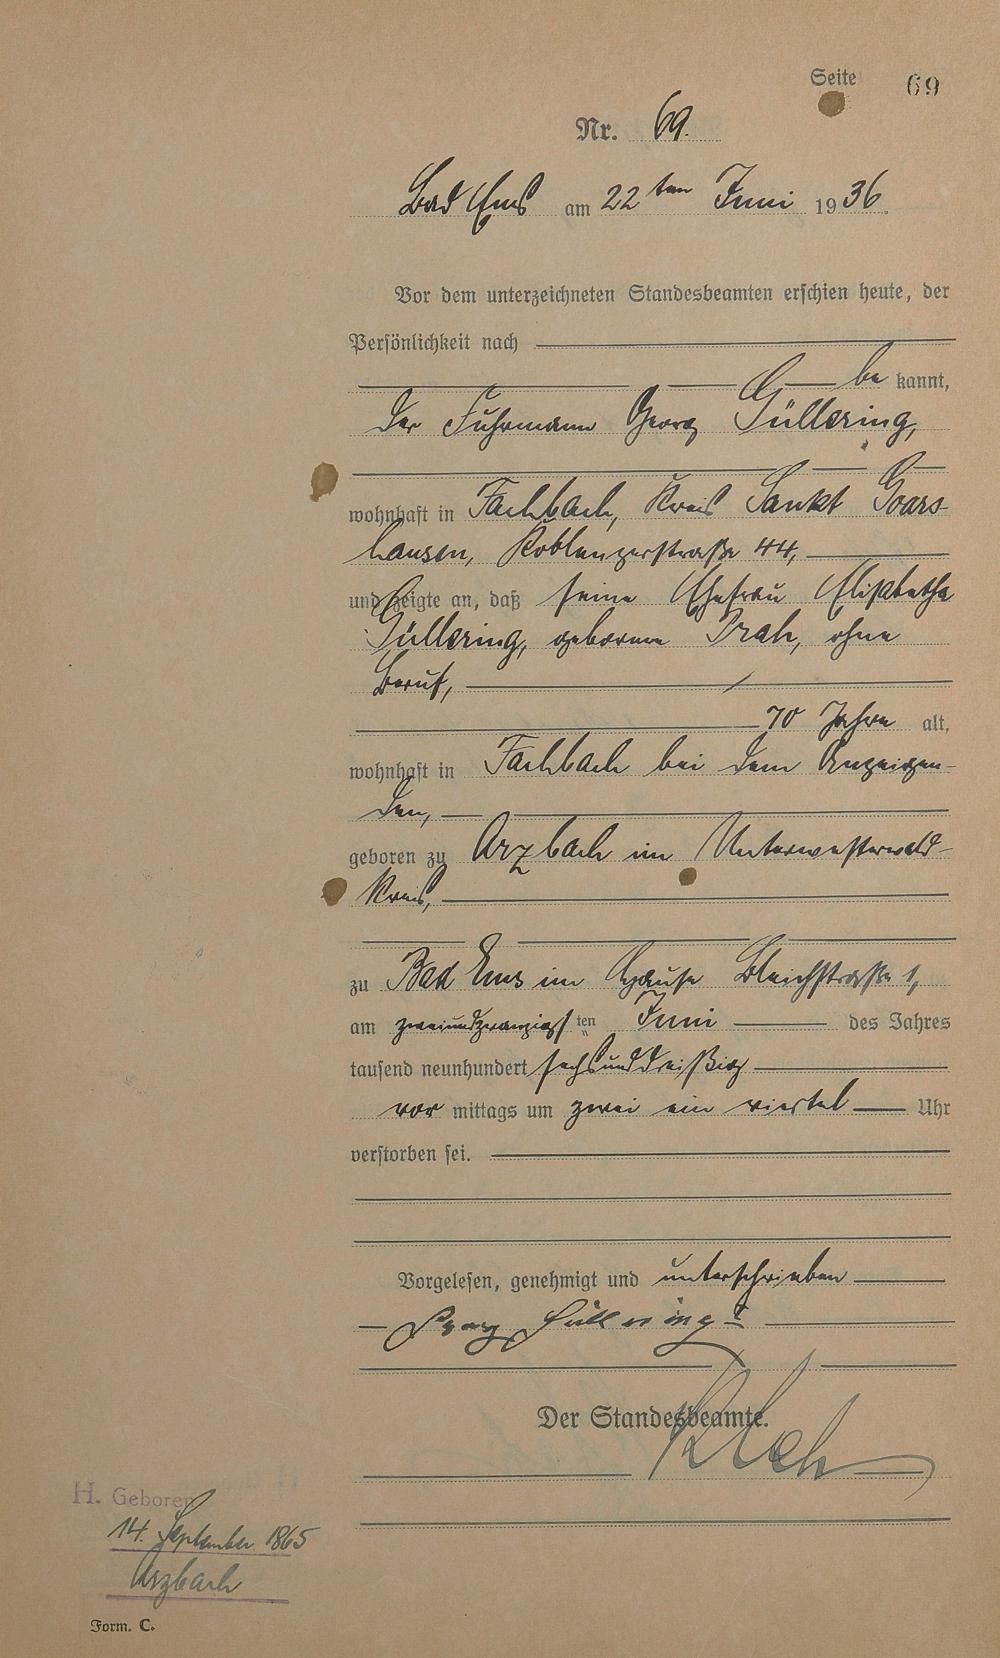 Seite 69
Nr. 69.
Bad Ems am 22ten Juni 1936.
Vor dem unterzeichneten Standesbeamten erschien heute, der
Persönlichkeit nach
be kannt,
der Fuhrmann Georg Güllering,
wohnhaft in Fachbach, Kreis Sankt Goars-
hausen, Koblenzerstraße 44,
und zeigte an, daß seine Ehefrau Elisabetha
Güllering, geborene Frah, ohne
Beruf,
70 Jahre alt,
wohnhaft in Fachbach bei dem Anzeigen-
den,
geboren zu Arzbach im Unterwesterwald-
kreis,
zu Bad Ems im Hause Bleichstraße 1,
am zweiundzwanzigsten Juni des Jahres
tausend neunhundert sechsunddreißig
vor mittags um zwei ein viertel Uhr
verstorben sei.
Vorgelesen, genehmigt und unterschrieben
Georg Güllering
Der Standesbeamte.
H. Geboren
14. September 1865
Arzbach
Form. C.